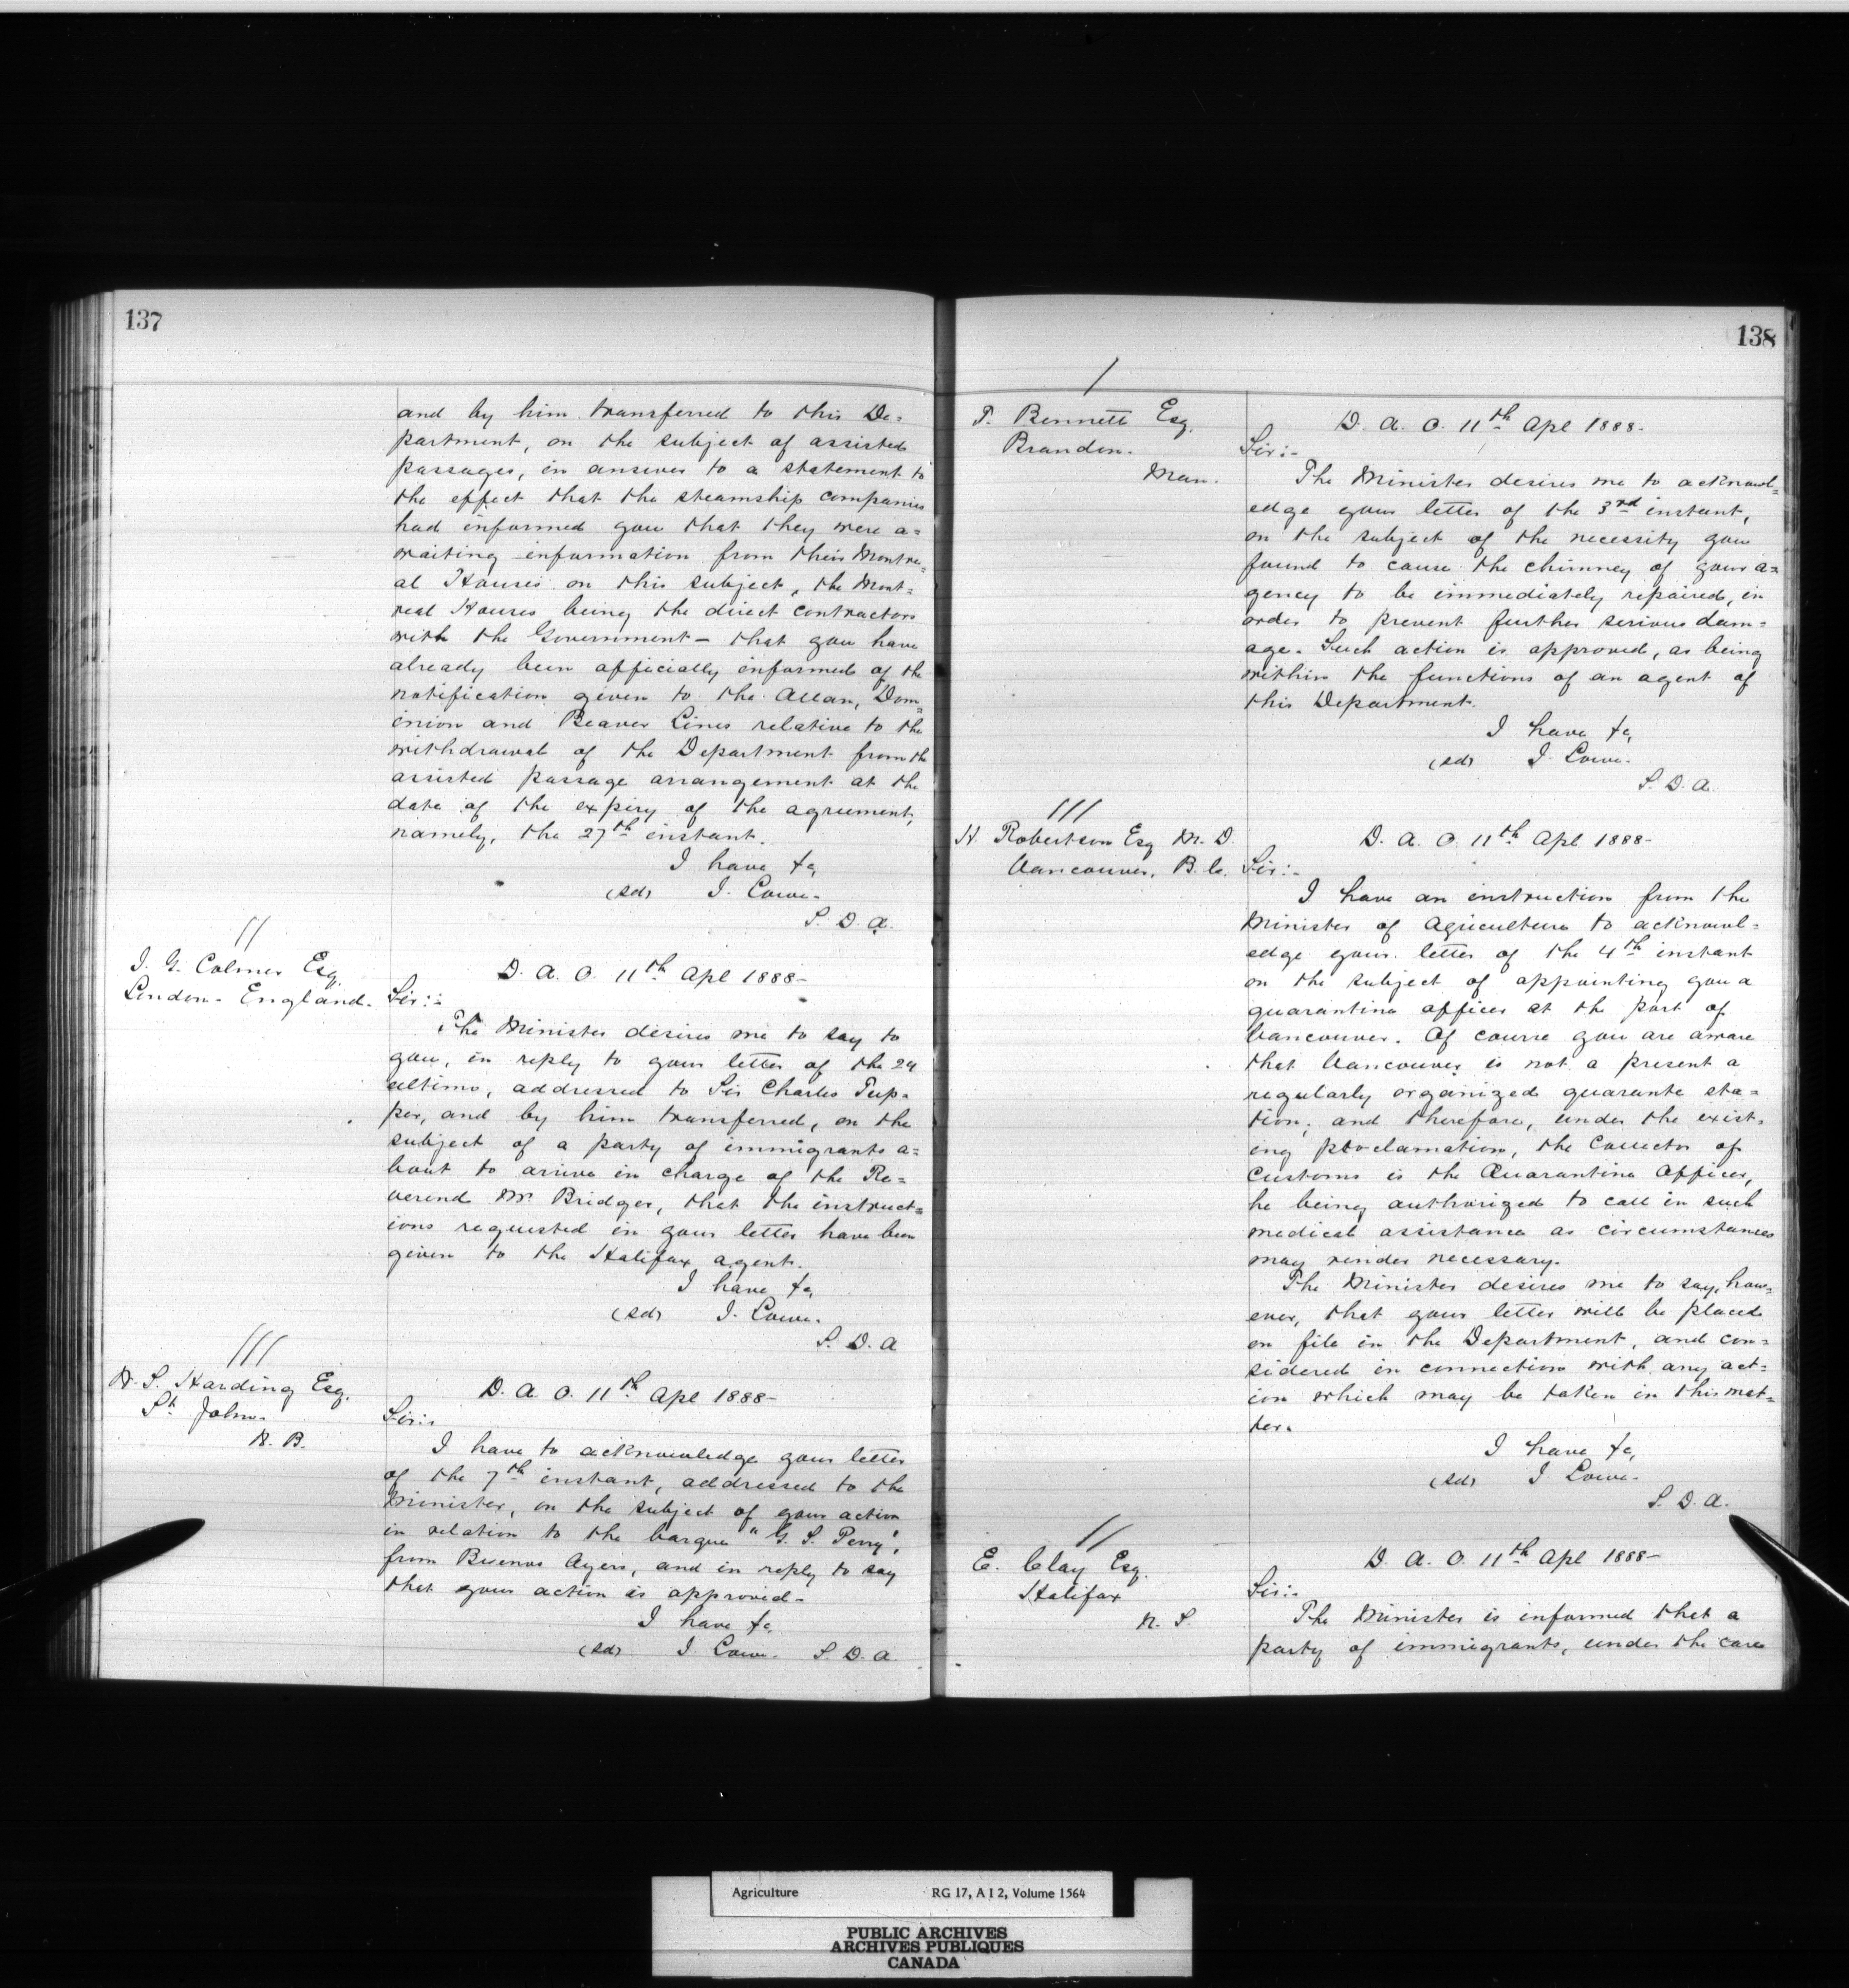 137
and by him transferred to this De=
partment, on the subject of assisted
passages, in answer to a statement to
the effect that the steamship companies
had informed you that they were a=
waiting information from their Montre=
al Houses on this subject, the Mont=
real Houses being the direct contractors
with the Government – that you have
already been officially informed of the
notification given to the Allan, Dom=
inion and Beaver Lines relative to the
withdrawal of the Department from the
assisted passage arrangement at the
date of the expiry of the agreement,
namely, the 27th instant.
I have &c,
(sd) J. Lowe.
S. D. A.
//
J. G. Colmer Esq.
London. England.
D. A. O. 11th Apl 1888-
Sir:-
The Minister desires me to say to
you, in reply to your letter of the 29
ultimo, addressed to Sir Charles Tup=
per, and by him transferred, on the
subject of a party of immigrants a=
bout to arrive in charge of the Re=
verend Mr. Bridger, that the instruct=
ions requested in your letter have been
given to the Halifax agent.
I have &c,
(sd) J. Lowe.
S. D. A
///
W. S. Harding Esq.
St. John.
N. B.
D. A. O. 11th Apl 1888-
Sir:-
I have to acknowledge your letter
of the 7th instant, addressed to the
Minister, on the subject of your action
in relation to the barque "G. S. Perry",
from Buenos Ayers, and in reply to say
that your action is approved.
I have &c,
(sd) J. Lowe. S. D. A.
138
/
T. Bennett Esq.
Brandon.
Man.
D. A. O. 11th Apl 1888-
Sir:-
The Minister desires me to acknowl=
edge your letter of the 3rd instant,
on the subject of the necessity you
found to cause the chimney of your a=
gency to be immediately repaired, in
order to prevent further serious dam=
age. Such action is approved, as being
within the functions of an agent of
this Department.
I have &c,
(sd) J. Lowe.
S. D. A.
///
H. Robertson Esq M. D.
Vancouver, B. C.
D. A. O. 11th Apl 1888-
Sir:-
I have an instruction from the
Minister of Agriculture to acknowl=
edge your letter of the 4th instant
on the subject of appointing you a
quarantine officer at the port of
Vancouver. Of course you are aware
that Vancouver is not a present a
regularly organized quarante sta=
tion, and therefore, under the exist=
ing proclamation, the Collector of
Customs is the Quarantine Officer,
he being authorized to call in such
medical assistance as circumstances
may render necessary.
The Minister desires me to say, how=
ever, that your letter will be placed
on file in the Department, and con=
sidered in connection with any act=
ion which may be taken in this mat=
ter.
I have &c,
(sd) J. Lowe.
S. D. A.
//
E. Clay Esq.
Halifax
N. S.
D. A. O. 11th Apl 1888-
Sir:-
The Minister is informed that a
party of immigrants, under the care
Agriculture RG 17, A I 2, Volume 1564
PUBLIC ARCHIVES
ARCHIVES PUBLIQUES
CANADA